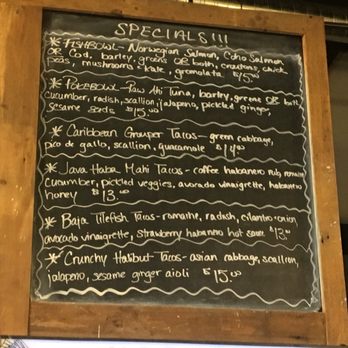 SPECIALS!!!
* FISHBOWL - Norwegian Salmon, Coho Salmon
OR Cod, barley, greens OR both, croutons, chick
peas, mushrooms + kale, gremolata $15.00
* POKEBOWL - Raw Ahi Tuna, barley, greens OR both
cucumber, radish, scallion, jalapeno, pickled ginger,
sesame seeds $15.00
* Caribbean Grouper Tacos - green cabbage,
pico de gallo, scallion, guacamole $14.00
* Java Haba Mahi Tacos - coffee habanero rub, romaine
cucumber, pickled veggies, avocado vinaigrette, habanero
honey $13.00
* Baja Tilefish Tacos - romaine, radish, cilantro-onion,
avocado vinaigrette, strawberry habanero hot sauce $13.00
* Crunchy Halibut Tacos - asian cabbage, scallion,
jalapeno, sesame ginger aioli $15.00